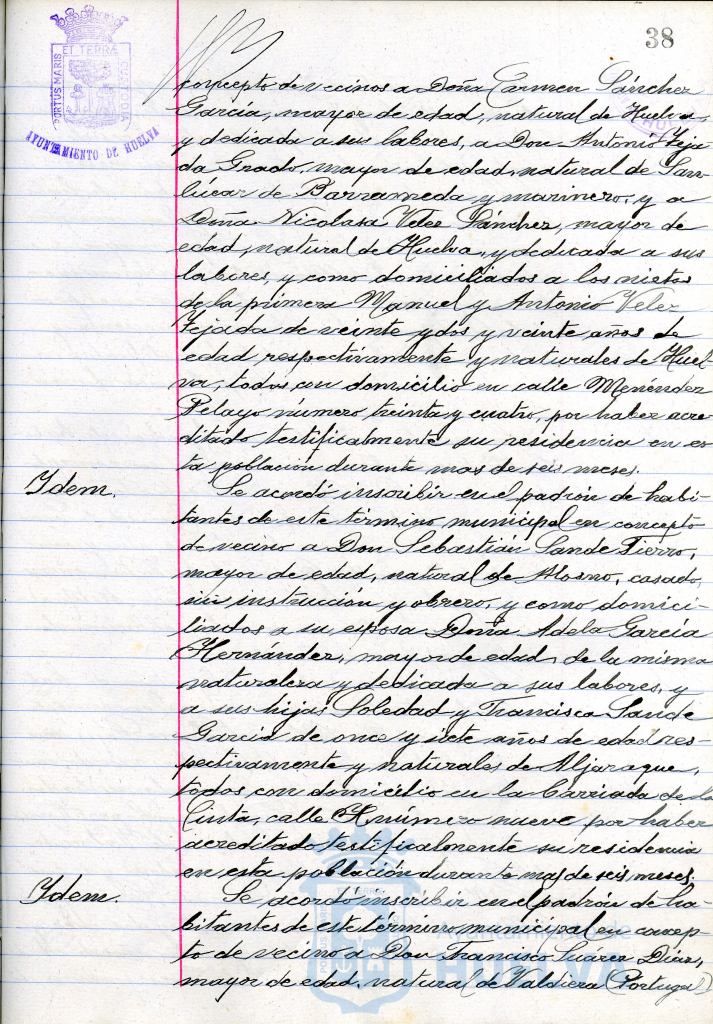 38
PORTUS MARIS ET TERRÆ CUSTODIA
AYUNTAMIENTO DE HUELVA
concepto de vecinos a Doña Carmen Sánchez
García, mayor de edad, natural de Huelva
y dedicada a sus labores, a Don Antonio Teja-
da Grado, mayor de edad, natural de San-
lúcar de Barrameda y marinero, y a
Doña Nicolasa Velez Sánchez, mayor de
edad, natural de Huelva, y dedicada a sus
labores, y como domiciliados a los nietos
de la primera Manuel y Antonio Velez
Tejada de veinte y dos y veinte años de
edad respectivamente y naturales de Huel-
va, todos con domicilio en calle Menéndez
Pelayo número treinta y cuatro, por haber acre-
ditado testificalmente su residencia en es-
ta población durante mas de seis meses.
Ydem. Se acordó inscribir en el padrón de habi-
tantes de este término municipal en concepto
de vecino a Don Sebastián Sande Fierro,
mayor de edad, natural de Alosno, casado,
sin instrucción y obrero, y como domici-
liados a su esposa Doña Adela García
Hernández, mayor de edad, de la misma
naturaleza y dedicada a sus labores, y
a sus hijas Soledad y Francisca Sande
García de once y siete años de edad res-
pectivamente y naturales de Aljaraque,
todos con domicilio en la barriada de la
Cinta, calle X número nueve por haber
acreditado testificalmente su residencia
en esta población durante mas de seis meses.
Ydem. Se acordo inscribir en el padrón de ha-
bitantes de este término municipal en concep-
to de vecino a Don Francisco Suarez Diaz,
mayor de edad, natural de Valdiera (Portugal)
Ayuntamiento de
HUELVA